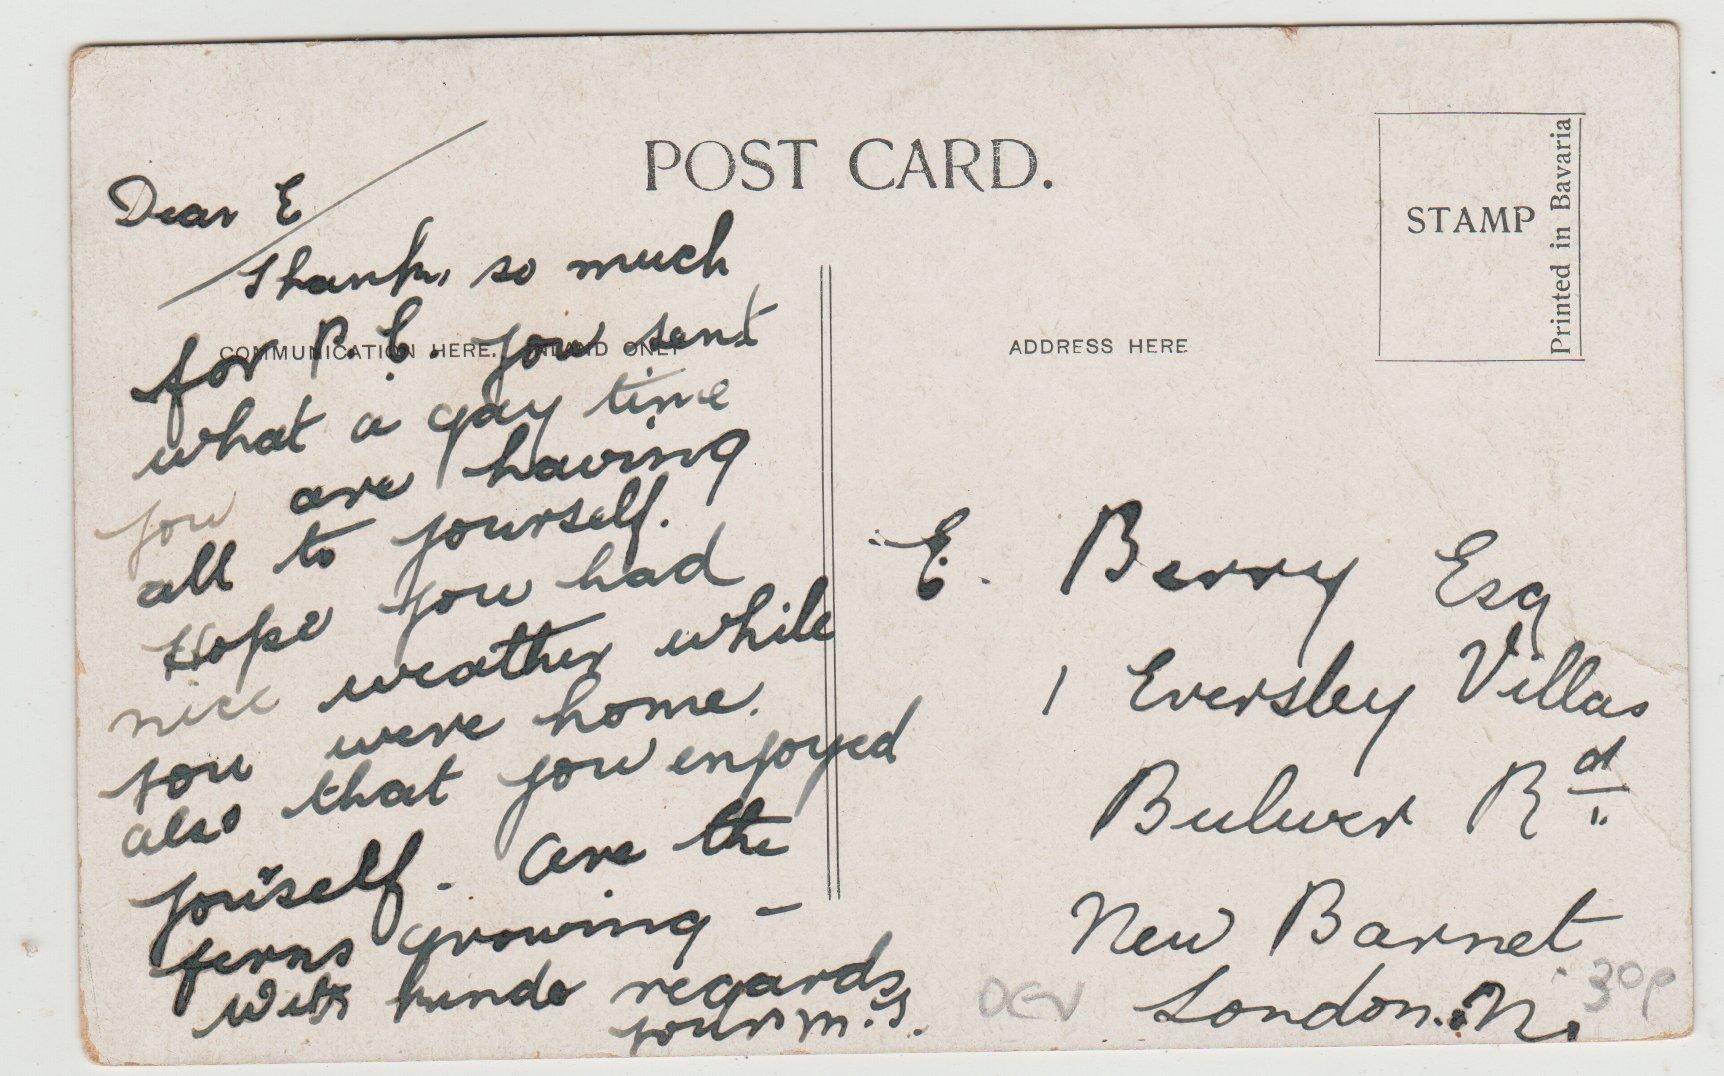 POST CARD.
STAMP
Printed in Bavaria
COMMUNICATION HERE. INLAND ONLY
ADDRESS HERE
Dear E
Thanks so much
for P.C. you sent
what a gay time
you are having
all to yourself.
Hope you had
nice weather while
you were home.
also that you enjoyed
yourself. Are the
ferns growing –
With kinds regards
yours M.S.
E. Berry Esq
1 Eversley Villas
Bulwer Rd
New Barnet
London. N.
DEV
30p